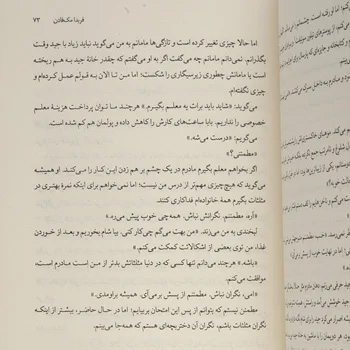 فریدا مک‌فادن
۷۳
اما حالا چیزی تغییر کرده است و تازگی‌ها مامانم به من می‌گوید نباید زیاد با جید وقت
بگذرانم. نمی‌دانم مامانم چه می‌گفت اگر به او می‌گفتم که چقدر خانهٔ جید به هم ریخته
است یا مامانش چطوری زیرسیگاری را شکست؛ اما من تا الان به قولم عمل کرده‌ام و
چیزی نگفته‌ام.
می‌گوید: «شاید باید برات یه معلم بگیرم.» هرچند ما توان پرداخت هزینهٔ معلم
خصوصی را نداریم. بابا ساعت‌های کارش را کاهش داده و پولمان هم کم شده است.
می‌گویم: «درست می‌شه.»
«مطمئنی؟»
اگر بخواهم معلم بگیرم مادرم در یک چشم بر هم زدن این کار را می‌کند. او همیشه
می‌گوید که هیچ‌چیزی مهم‌تر از درس من نیست؛ اما نمی‌خواهم برای اینکه نمرهٔ بهتری در
مثلثات بگیرم همهٔ خانواده‌ام فداکاری کنند.
«آره، مطمئنم. نگرانش نباش. همه‌چی خوب پیش می‌ره.»
لبخندی به من می‌زند. «بهت می‌گم چی‌کار کنی. بیا شام بخوریم و بعد از خوردن
غذا، من توی بعضی از اشکالاتت کمکت می‌کنم.»
«باشه.» هرچند می‌دانم تنها کسی که در دنیا مثلثاتش بدتر از من است مادرم است،
موافقت می‌کنم.
«امی، نگران نباش. مطمئنم از پسش برمی‌آی. همیشه براومدی.»
مطمئن نیستم که بتوانم از پس این امتحان بربیایم؛ اما در حال حاضر، بیشتر از اینکه
نگران مثلثات باشم، نگران آن دختربچه‌ای هستم که همه‌جا می‌بینم.